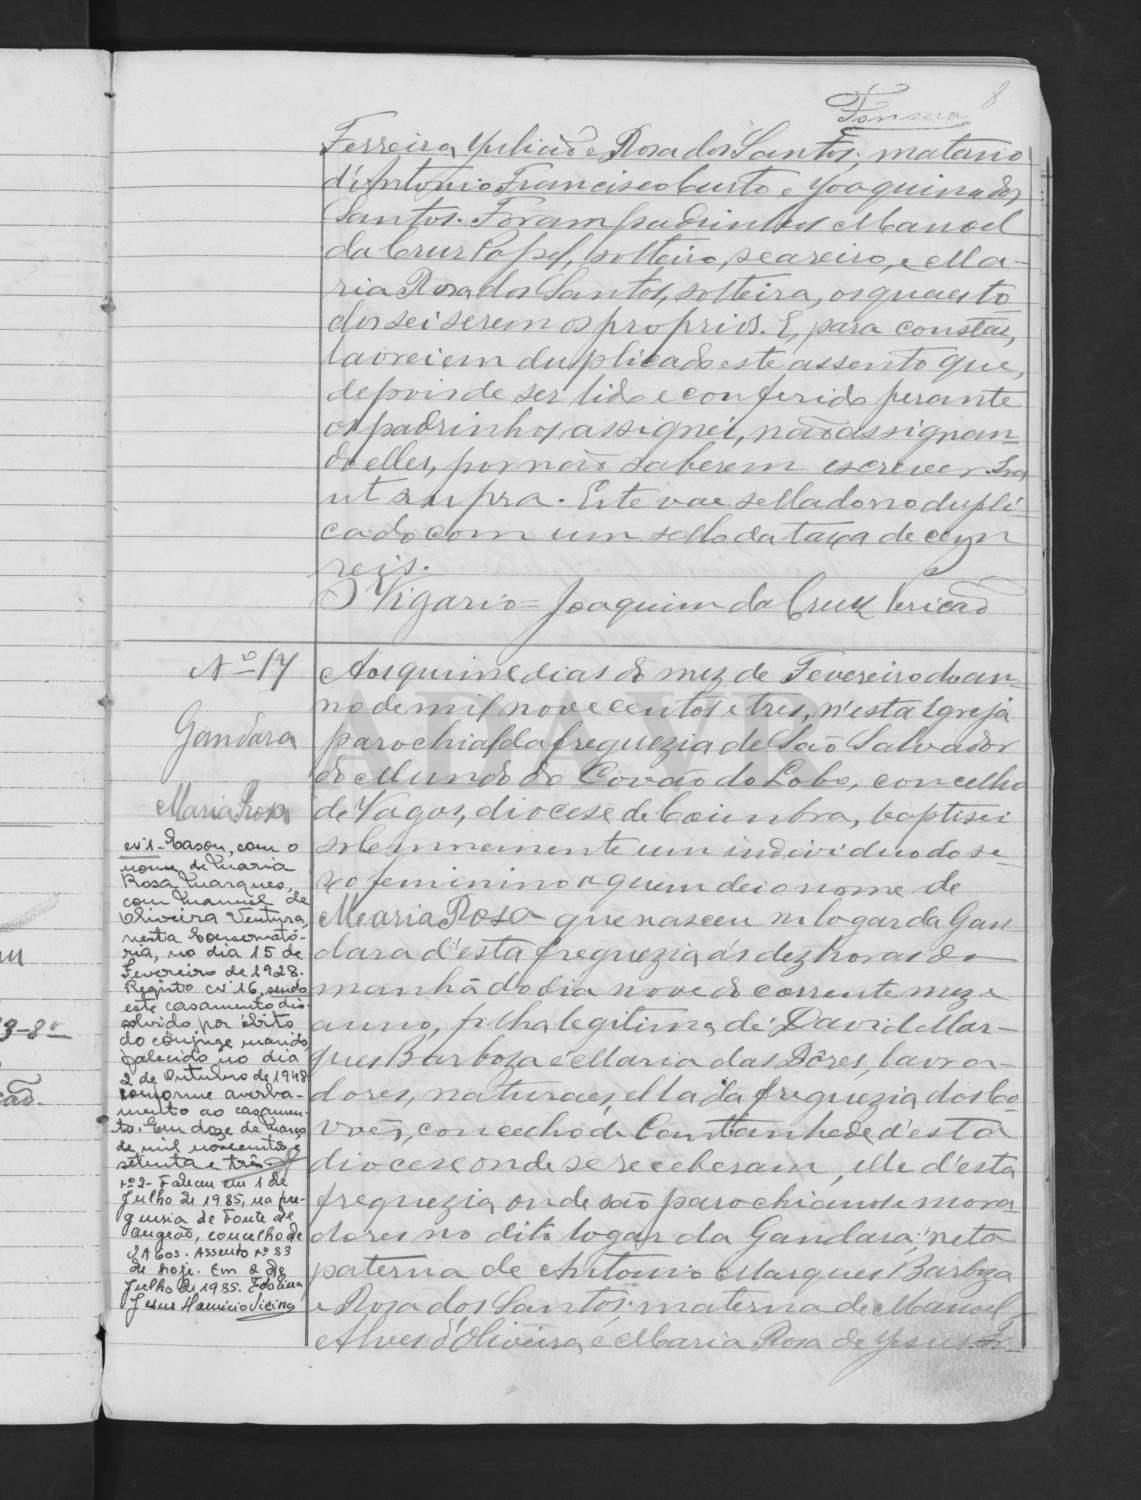 8
Fonseca
Ferreira Julião e Rosa dos Santos; materno
d'Antonio Francisco Custo e Joaquina dos
Santos. Foram padrinhos Manoel
da Cruz Papel, solteiro, seareiro, e Ma-
ria Rosa dos Santos, solteira, os quaes to
dos sei serem os proprios. E, para constar,
lavrei em duplicado este assento que,
depois de ser lido e conferido perante
os padrinhos, assignei, não assignan-
do elles, por não saberem escrever. Era
ut supra. Este vae sellado no dupli-
cado com um sello da taxa de cem
reis.
O Vigario = Joaquim da Cruz
Nº 17
Gandara
Maria Rosa
Aos quinze dias do mez de Fevereiro do an-
no de mil novecentos e tres, n'esta Igreja
parochial da freguezia de São Salvador
do Mundo do Covão do Lobo, concelho
de Vagos, diocese de Coimbra, baptisei
solemnemente um individuo do se-
xo feminino a quem dei o nome de
Maria Rosa que nasceu no logar da Gan
dara d'esta freguezia ás dez horas da
manhã do dia nove do corrente mez e
anno, filha legitima de David Mar-
ques Barboza e Maria das Dôres, lavra-
dores, naturaes, ella da freguezia dos Co-
vões, concelho de Cantanhede d'esta
diocese onde se receberam, elle d'esta
freguezia, onde são parochianos e mora
dores no dito logar da Gandara: neta
paterna de Antonio Marques Barboza
e Rosa dos Santos; materna de Manoel
Alves d'Oliveira e Maria Rosa de Jesus.
Nº 1 - Casou, com o
nome de Maria
Rosa Marques,
com Manuel de
Oliveira Ventura,
nesta Conservató-
ria, no dia 15 de
Fevereiro de 1928.
Registo nº 16, sendo
este casamento dis-
solvido por óbito
do cônjuge marido,
falecido no dia
2 de Outubro de 1948
conforme averba-
mento ao casamen-
to. Em doze de Março
de mil novecentos e
setenta e três
Nº 2 - Faleceu em 1 de
Julho de 1985, na fre-
guesia de Fonte de
Angeão, concelho de
VAGOS. Assento nº 83
de hoje. Em 2 de
Julho de 1985.
APAVR